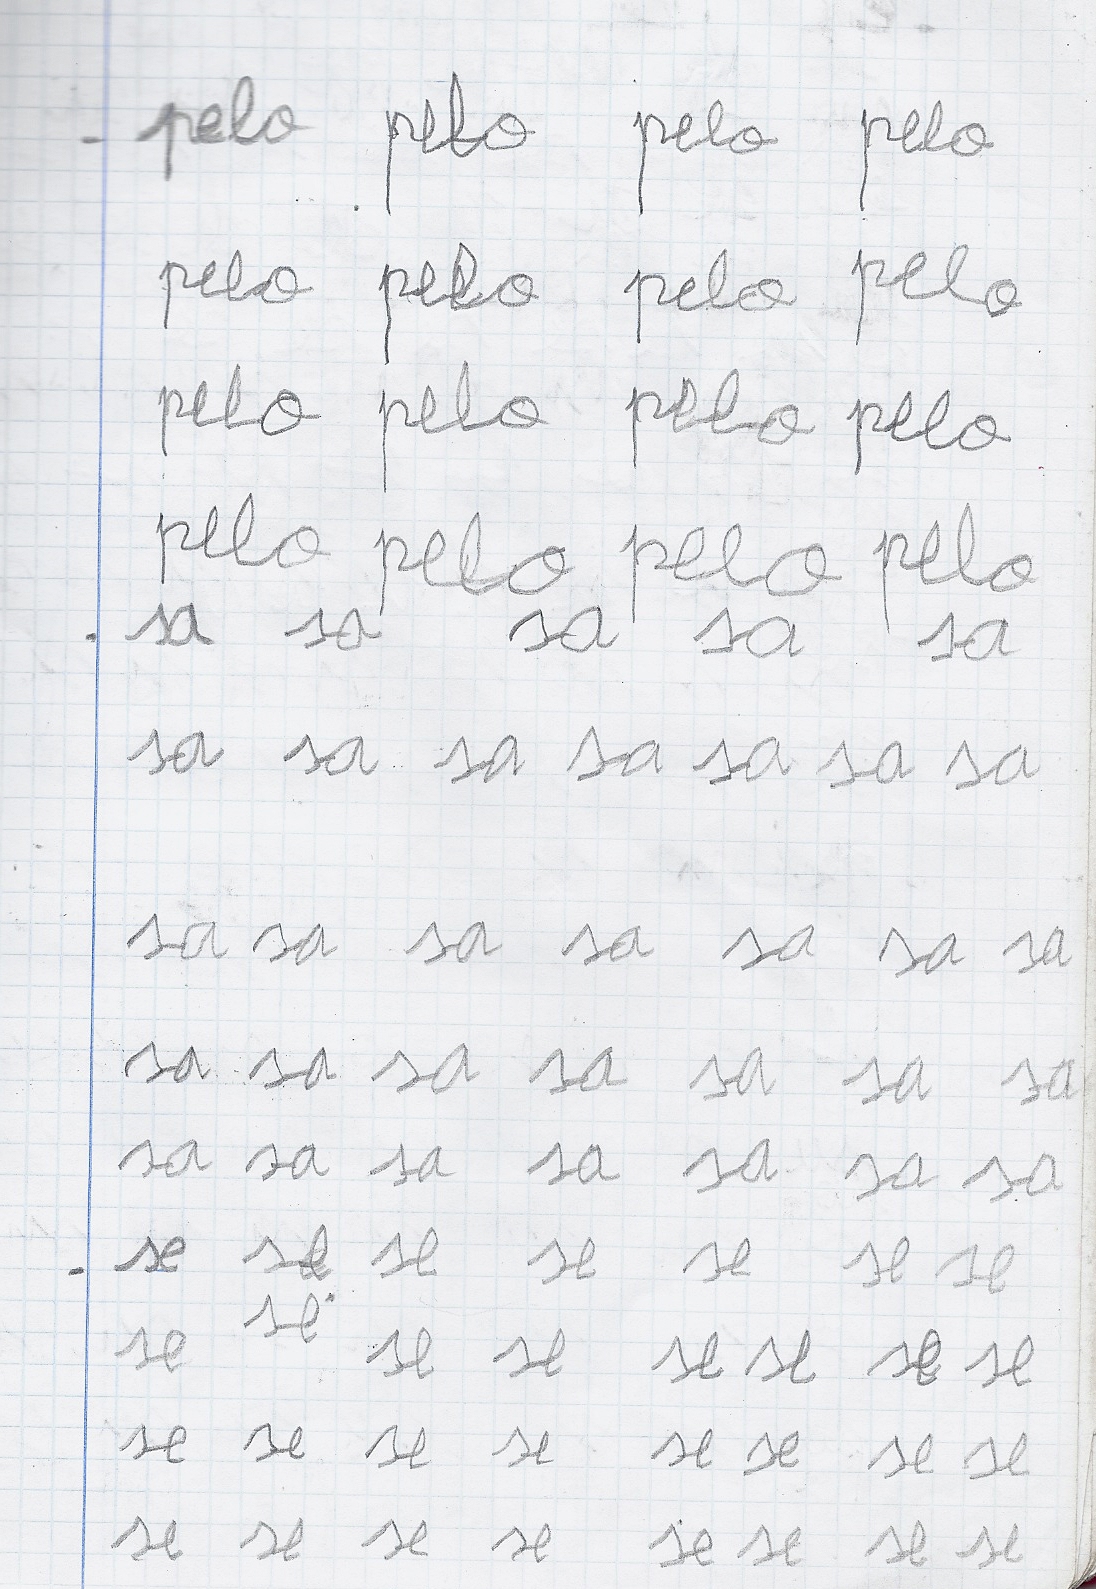 pelo pelo pelo pelo
pelo pelo pelo pelo
pelo pelo pelo pelo
pelo pelo pelo pelo
sa sa sa sa sa
sa sa sa sa sa sa sa
sa sa sa sa sa sa sa
sa sa sa sa sa sa sa
sa sa sa sa sa sa sa
se se se se se se se
se se se se se se se se
se se se se se se se se
se se se se se se se se